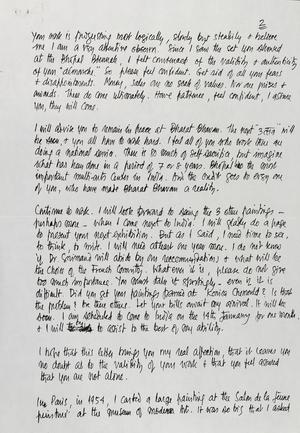 2
Your work is progressing most logically, slowly but steadily & believe
me I am a very attentive observer. Since I saw the set you showed
at the Bhopal Bharat, I felt convinced of the validity & authenticity
of your "démarche". So please feel confident. Get rid of all your fears
& disappointments. Money, sales are no seal of values. Nor are prizes &
awards. These do come ultimately. Have patience, feel confident, I assure
you, they will come.
I will advise you to remain in peace at Bharat Bhavan. The next will
be soon, & you all have to work hard. I feel all of you who work there are
doing a national service. There is so much of self-sacrifice, but imagine
what has been done in a period of 7 or 8 years. Bhopal is the most
important multi-arts center in India. And the credit goes to every one
of you, who have made Bharat Bhavan a reality.
Continue to work. I will look forward to seeing the 3 other paintings –
perhaps more – when I come next to India. I will gladly do a page
to present your next exhibition. But as I said, I need time to see,
to think, to write. I will need at least one year more. I do not know
if Dr. will abide by our recommendations & what will be
the choice of the French Committee. What ever it is, please do not give
too much importance. You must take it sportingly – even if it is
difficult. Did you get your paintings framed at ? Is that
the problem? Be there others. Let your bills await my arrival. It will be
soon. I am scheduled to come to India on the 14th January for one month,
& I will try to assist to the best of my ability.
I hope that this letter brings you my real affection, that it leaves you
no doubt as to the validity of your work & that you feel assured
that you are not alone.
In Paris, in 1954, I carted a large painting at the Salon de la Jeune
peinture at the museum of modern art. It was so big that I asked